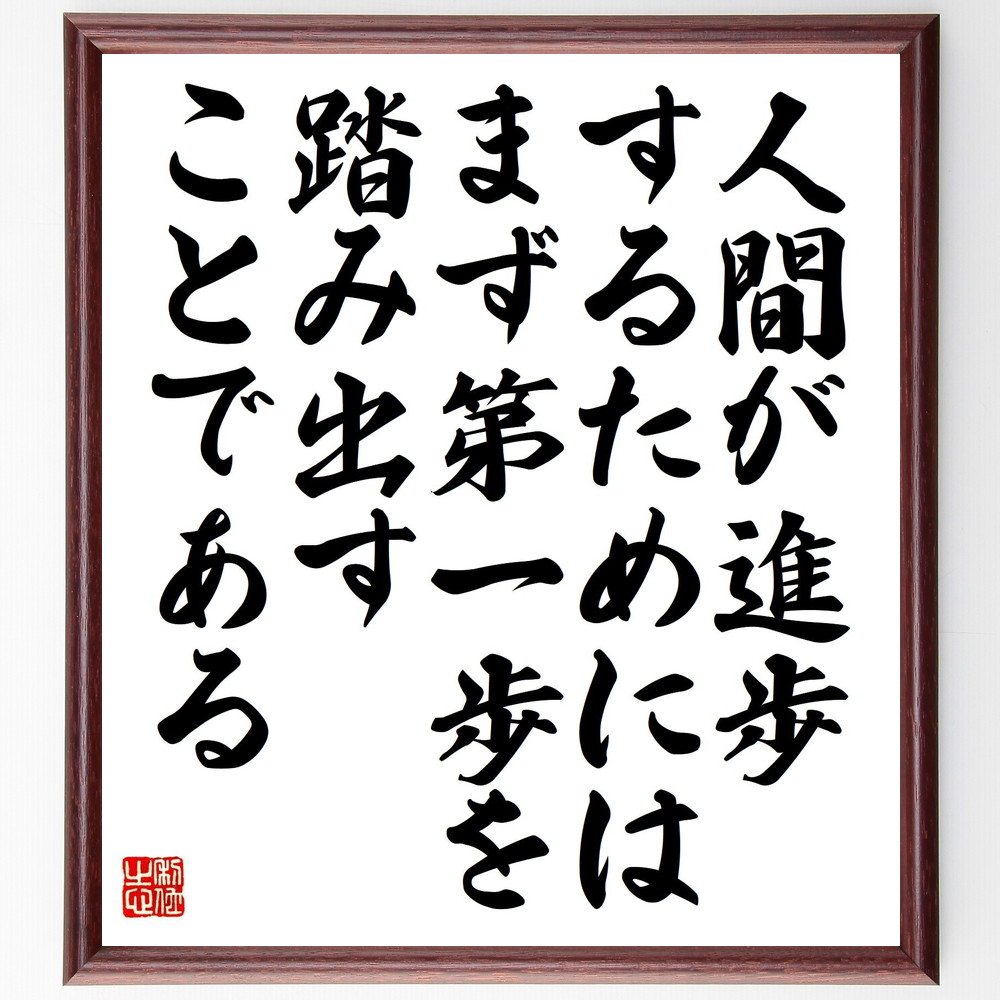 人間が進歩
するためには
まず第一歩を
踏み出す
ことである